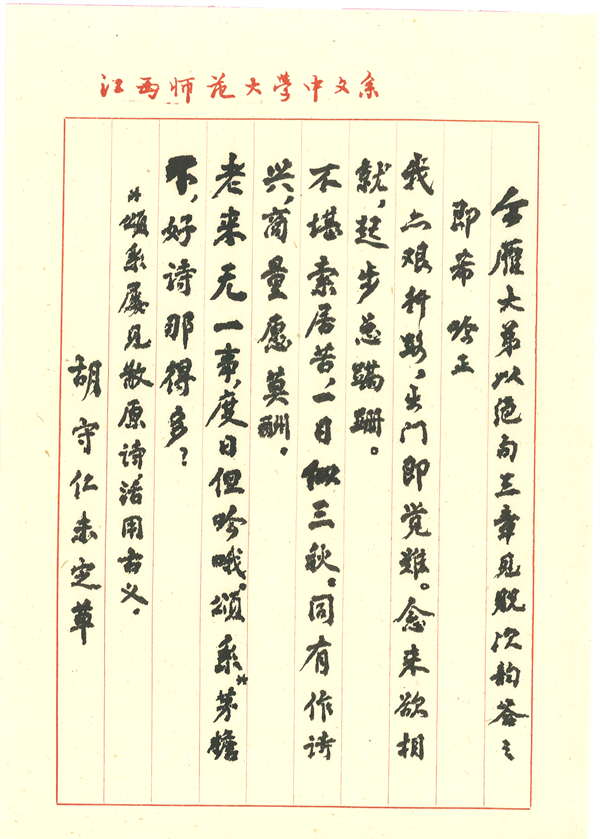 江西师范大学中文系
仝雁大弟以绝句三章见贶次韵答之
即希吟正
我亦艰行路，出门即觉难。念来欲相
就，起步总蹒跚。
不堪索居苦，一日似三秋。同有作诗
兴，商量愿莫酬。
老来无一事，度日但吟哦。颂系※茅檐
下，好诗那得多？
※颂系屡见散原诗，活用古义。
胡守仁未定草